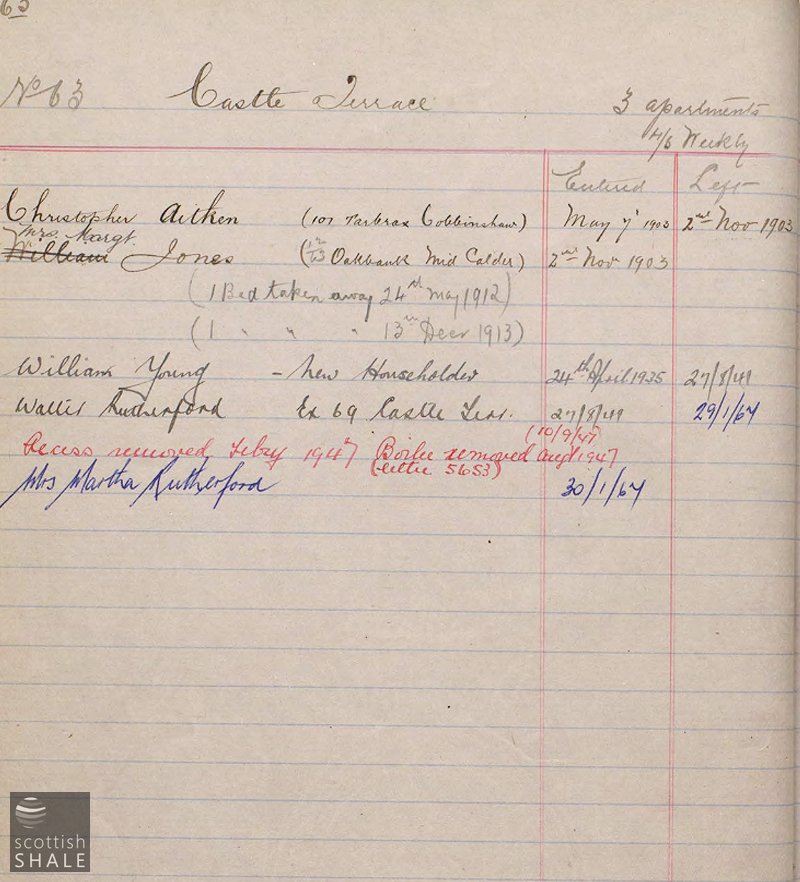 63
No 63 Castle Terrace 3 apartments
4/3 Weekly
Entered Left
Christopher Aitken (107 Tarbrax Cobbinshaw) May 7 1903 2nd Nov 1903
Mrs. Margt.
William Jones (12/13 Oakbank Mid Calder) 2nd Nov 1903
(1 Bed taken away 24th May 1912)
(1 " " " 13th Decr 1913)
William Young - New Householder 24th April 1935 27/8/41
Walter Rutherford Ex 69 Castle Terr. 27/8/41 29/1/67
(10/9/47)
Recess removed Febry 1947 Boiler removed Aug 1947
(letter 5653)
Mrs Martha Rutherford 30/1/67
scottish
SHALE